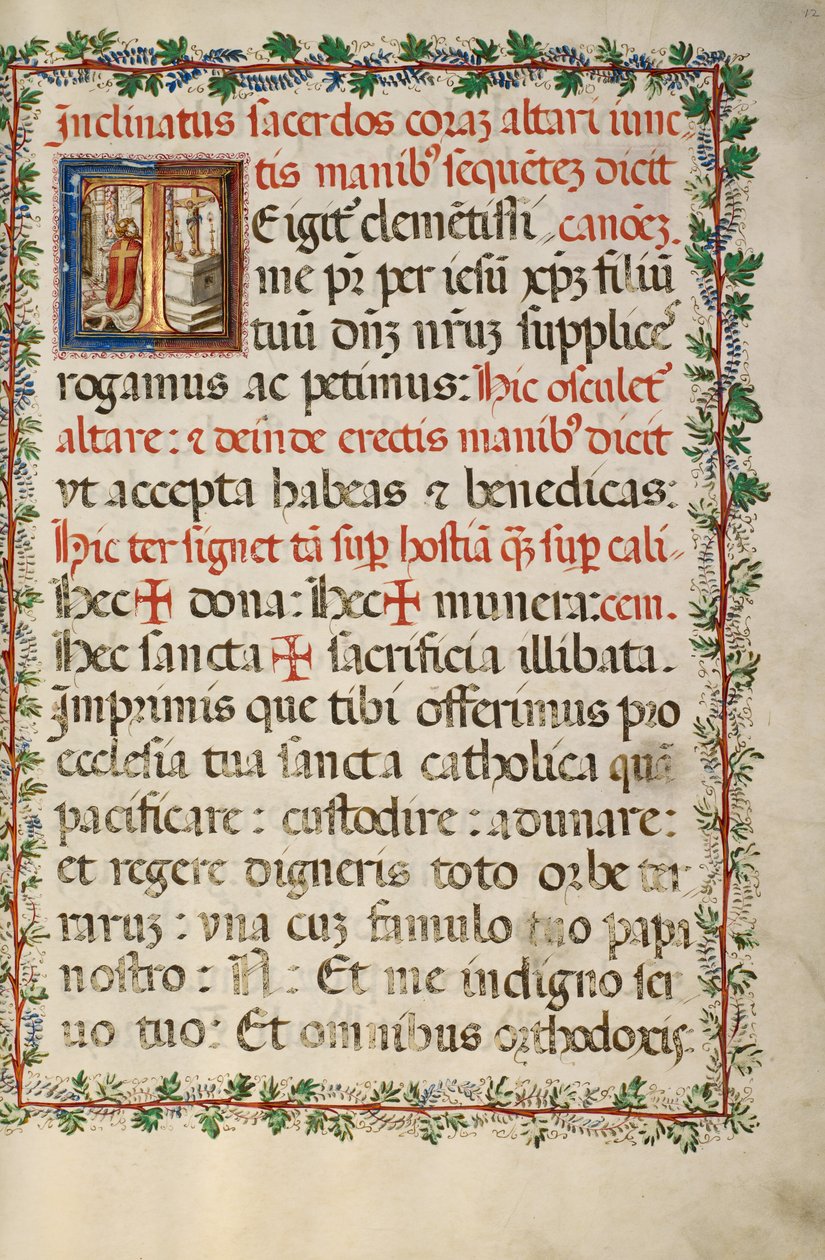 12
Inclinatus sacerdos coraʒ altari iunc-
tis manibꝰ sequẽteʒ dicit
TE igit᷑ clemẽtissi- canõeʒ.
me pr̃ per iesũ xp̃ʒ filiũ
tuũ dñʒ nr̃uʒ supplice᷒
rogamus ac petimus: Hic osculet᷑
altare: ⁊ deinde erectis manibꝰ dicit
vt accepta habeas ⁊ benedicas:
Hic ter signet tã suꝑ hostiã q̃ʒ suꝑ cali-
Hec ✠ dona: Hec ✠ munera: cem.
Hec sancta ✠ sacrificia illibata.
Imprimis que tibi offerimus pro
ecclesia tua sancta catholica quã
pacificare: custodire: adunare:
et regere digneris toto orbe ter
raruʒ: vna cuʒ famulo tuo papa
nostro: N: Et me indigno ser
uo tuo: Et omnibus orthodoxis: